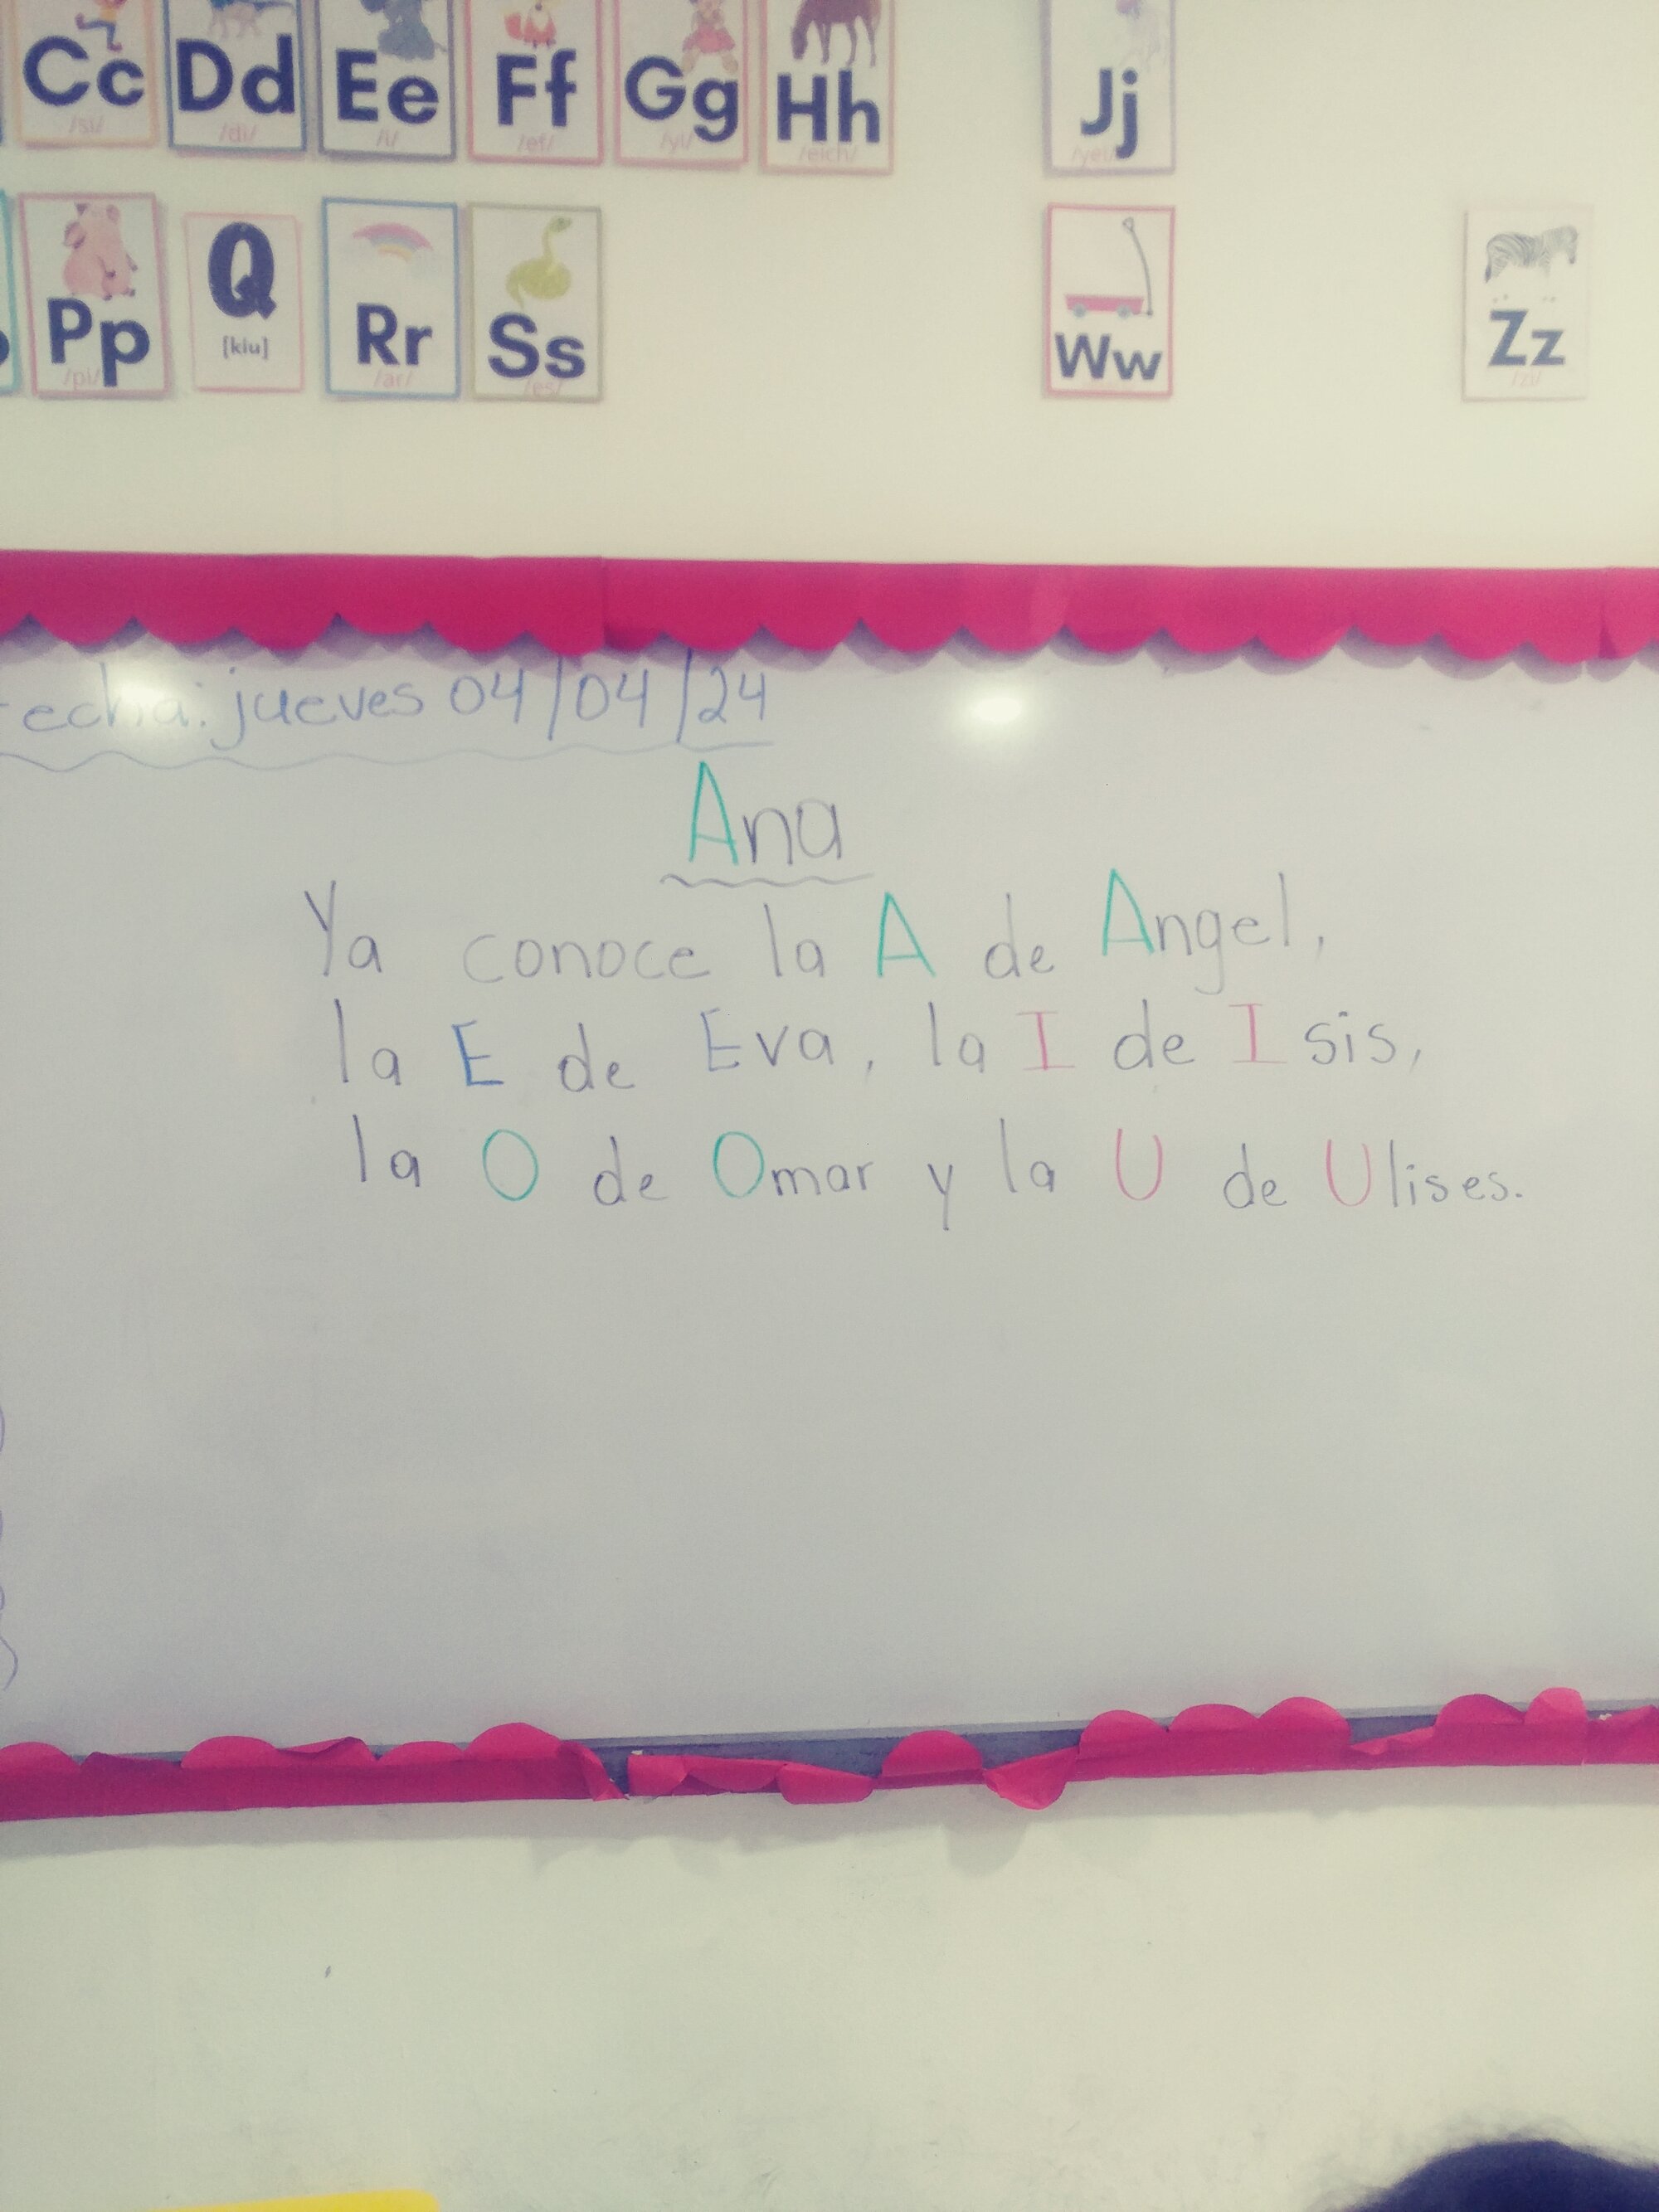 Cc Dd Ee Ff Gg Hh Jj
/si/ /di/ /i/ /ef/ /yi/ /eich/ /yei/
Pp Q Rr Ss Ww Zz
/pi/ [kiu] /ar/ /es/ /zi/
Fecha: jueves 04/04/24
Ana
Ya conoce la A de Angel,
la E de Eva, la I de Isis,
la O de Omar y la U de Ulises.